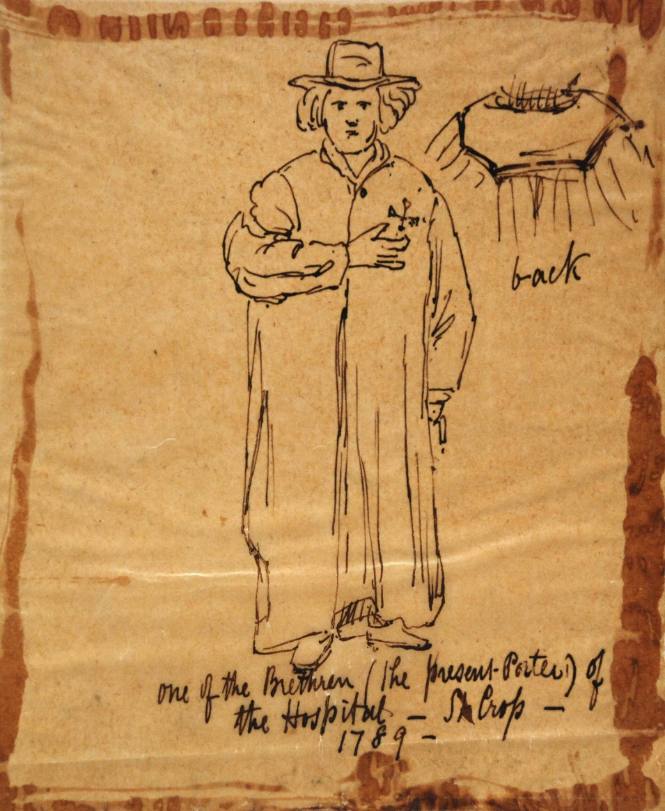 back
one of the Brethren (the present Porter) of
the Hospital – St Croſs –
1789 –